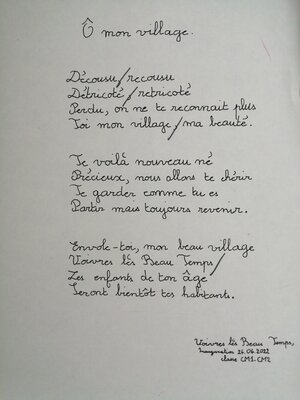 Ô mon village.
Décousu/recousu
Détricoté/retricoté
Perdu, on ne te reconnait plus
Toi mon village/ma beauté.
Te voilà nouveau né
Précieux, nous allons te chérir
Te garder comme tu es
Partir mais toujours revenir.
Envole-toi, mon beau village
Voivres lès Beau Temps/
Les enfants de ton âge
Seront bientôt tes habitants.
Voivres lès Beau Temps,
Inauguration 26.06.2022
classe CM1-CM2